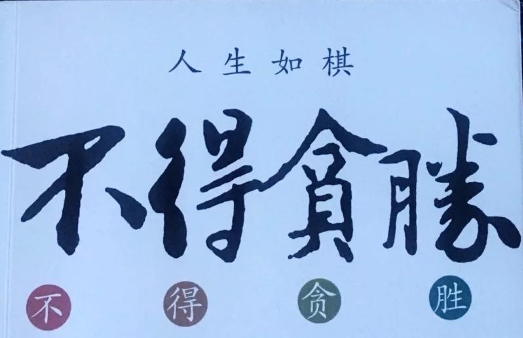 人生如棋
不得貪勝
不得贪胜